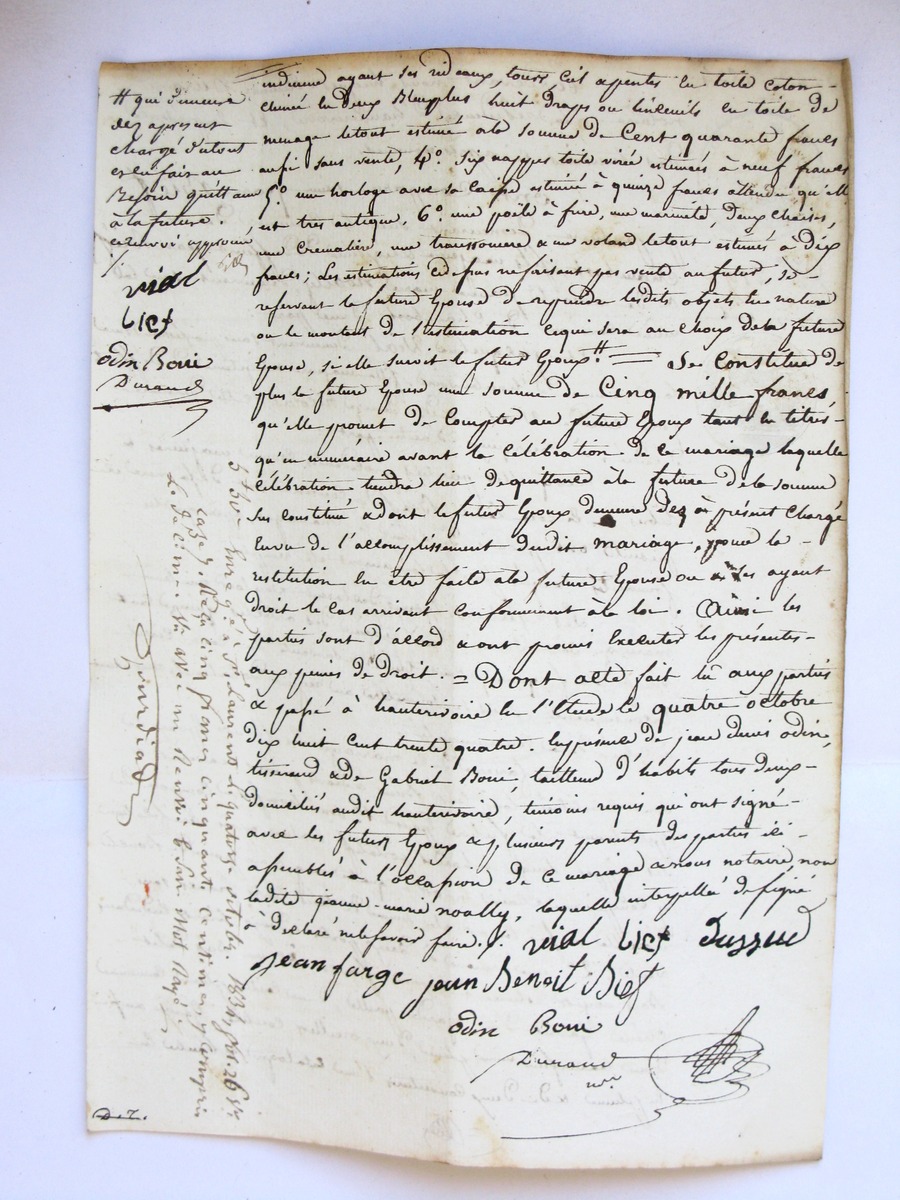 indienne ayant ses rideaux, tours, ciel & pentes en toile coton
chiné en deux bleus, plus huit draps ou linceuils en toile de
menage le tout estimé à la somme de Cent quarante francs
aussi sans vente, 4º. Six nappes toile virée estimées à neuf francs
5º. une horloge avec sa caisse estimée à quinze francs attendu qu'elle
est tres antique, 6º. une poële à frire, une marmite, deux chaises,
une cremalière, une & un voland le tout estimés à dix
francs; les estimations ci dessus ne faisant pas vente au futur, se
reservant la future Epouse de reprendre lesdits objets en nature
ou le montant de l'estimation ce qui sera au choix de la future
Epouse, si elle survit le futur Epoux # = Se Constitue de
plus la future Epouse une somme de Cinq mille francs,
qu'elle promet de Compter au futur Epoux tant en titres
qu'en numéraire avant la Célébration de ce mariage laquelle
célébration tiendra lieu de quittance à la future de la somme
sus constitué & dont le futur Epoux demeure dez à présent Chargé
en vu de l'accomplissement dudit mariage, pour la
restitution en être faite à la future Epouse ou à ses ayant
droit le cas arrivant conformement à la loi. Ainsi les
parties sont d'accord & ont promis Executer les présentes
aux peines de Droit. = Dont acte fait lu aux parties
& passé à hauterivoire en l'Etude le quatre octobre
dix huit cent trente quatre. En présence de jean denis odin,
tisserand & de Gabriel Boui, tailleur d'habits tous deux
domiciliés audit hauterivoire, témoins requis qui ont signé
avec les futurs Epoux & plusieurs parents des parties ici
assemblés à l'occasion de ce mariage & nous notaire, non
ladite jeanne-marie noally, laquelle interpellé de signé
à declaré ne le savoir faire. /. vial biet Dussud
jean farge jean Benoit Biet
odin Boui
Durand
nre
# qui demeure
dez apresent
chargé du tout
& en fair au
Besoin quittance
à la future.
& renvoi approuvé
/.
vial
biet
odin Boui
Durand
Enregé à St. Laurent le quatorze octobre 1834, fo. 26 Vo.
case 7. Reçu cinq francs cinquante centimes, y compris
le décime.